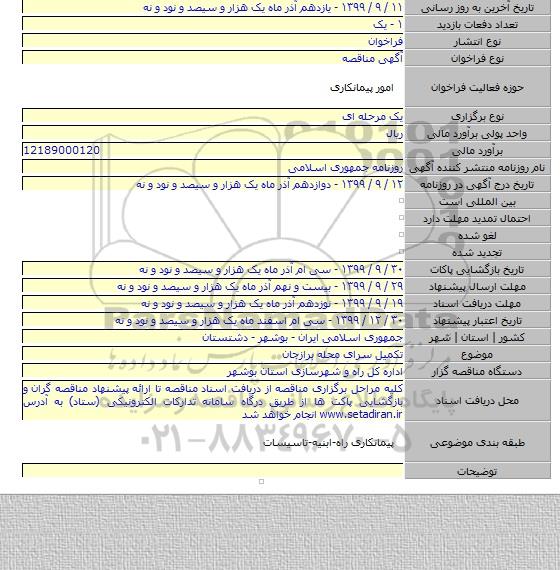 تاریخ آخرین به روز رسانی ۱۱ / ۹ / ۱۳۹۹ - یازدهم آذر ماه یک هزار و سیصد و نود و نه
تعداد دفعات بازدید ۱ - یک
نوع انتشار فراخوان
نوع فراخوان آگهی مناقصه
حوزه فعالیت فراخوان امور پیمانکاری
نوع برگزاری یک مرحله ای
واحد پولی برآورد مالی ریال
برآورد مالی 12189000120
نام روزنامه منتشر کننده آگهی روزنامه جمهوری اسلامی
تاریخ درج آگهی در روزنامه ۱۲ / ۹ / ۱۳۹۹ - دوازدهم آذر ماه یک هزار و سیصد و نود و نه
بین المللی است
احتمال تمدید مهلت دارد
لغو شده
تجدید شده
تاریخ بازگشایی پاکات ۳۰ / ۹ / ۱۳۹۹ - سی ام آذر ماه یک هزار و سیصد و نود و نه
مهلت ارسال پیشنهاد ۲۹ / ۹ / ۱۳۹۹ - بیست و نهم آذر ماه یک هزار و سیصد و نود و نه
مهلت دریافت اسناد ۱۹ / ۹ / ۱۳۹۹ - نوزدهم آذر ماه یک هزار و سیصد و نود و نه
تاریخ اعتبار پیشنهاد ۳۰ / ۱۲ / ۱۳۹۹ - سی ام اسفند ماه یک هزار و سیصد و نود و نه
کشور | استان | شهر جمهوری اسلامی ایران - بوشهر - دشتستان
موضوع تکمیل سرای محله برازجان
دستگاه مناقصه گزار اداره کل راه و شهرسازی استان بوشهر
محل دریافت اسناد کلیه مراحل برگزاری مناقصه از دریافت اسناد مناقصه تا ارائه پیشنهاد مناقصه گران و
بازگشایی پاکت ها از طریق درگاه سامانه تدارکات الکترونیکی (ستاد) به آدرس
www.setadiran.ir انجام خواهد شد
طبقه بندی موضوعی پیمانکاری راه-ابنیه-تاسیسات
توضیحات
۰۲۱-۸۸۳۴۹۶۷۰-۵